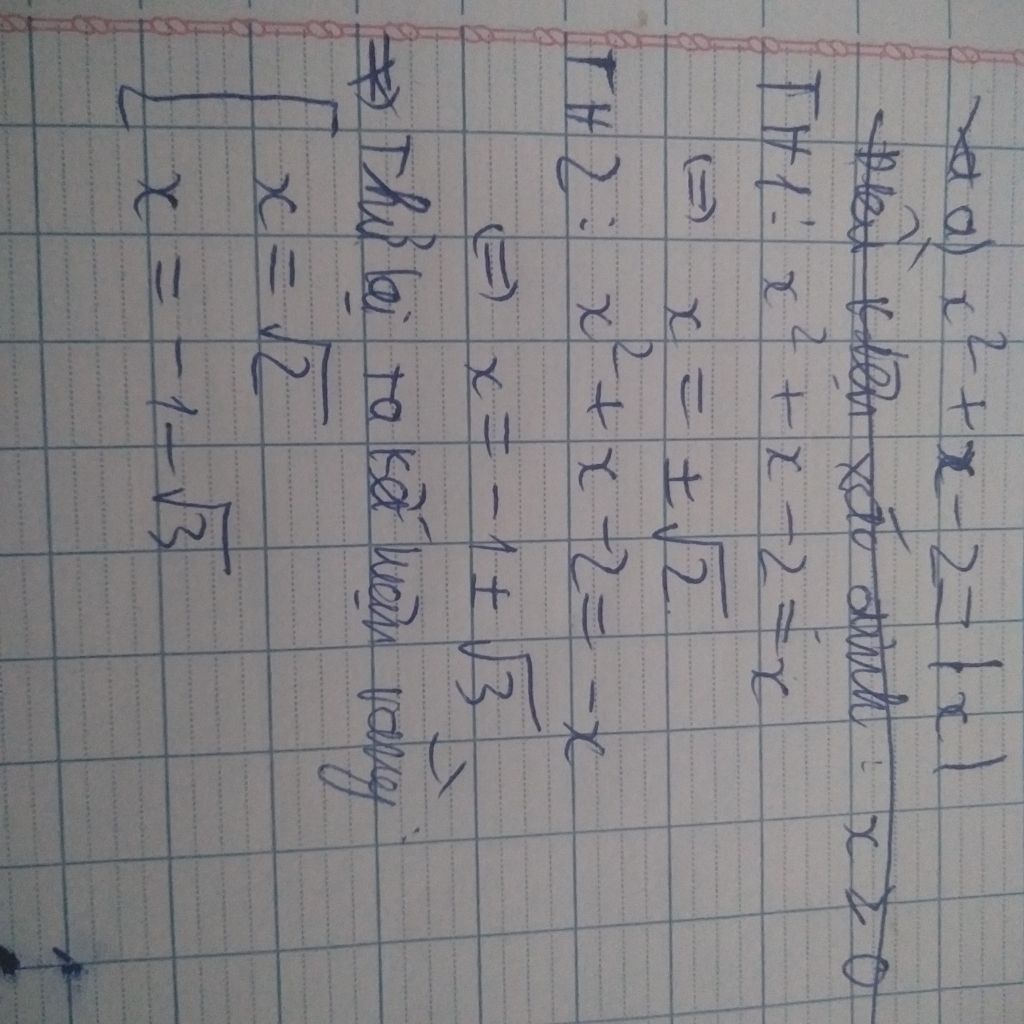 a) x² + x - 2 = |x|
Điều kiện xác định : x ≥ 0
TH1: x² + x - 2 = x
(=) x = ± √2
TH2: x² + x - 2 = - x
(=) x = - 1 ± √3
=) Thử lại ta kết luận rằng:
[ x = √2
x = - 1 - √3